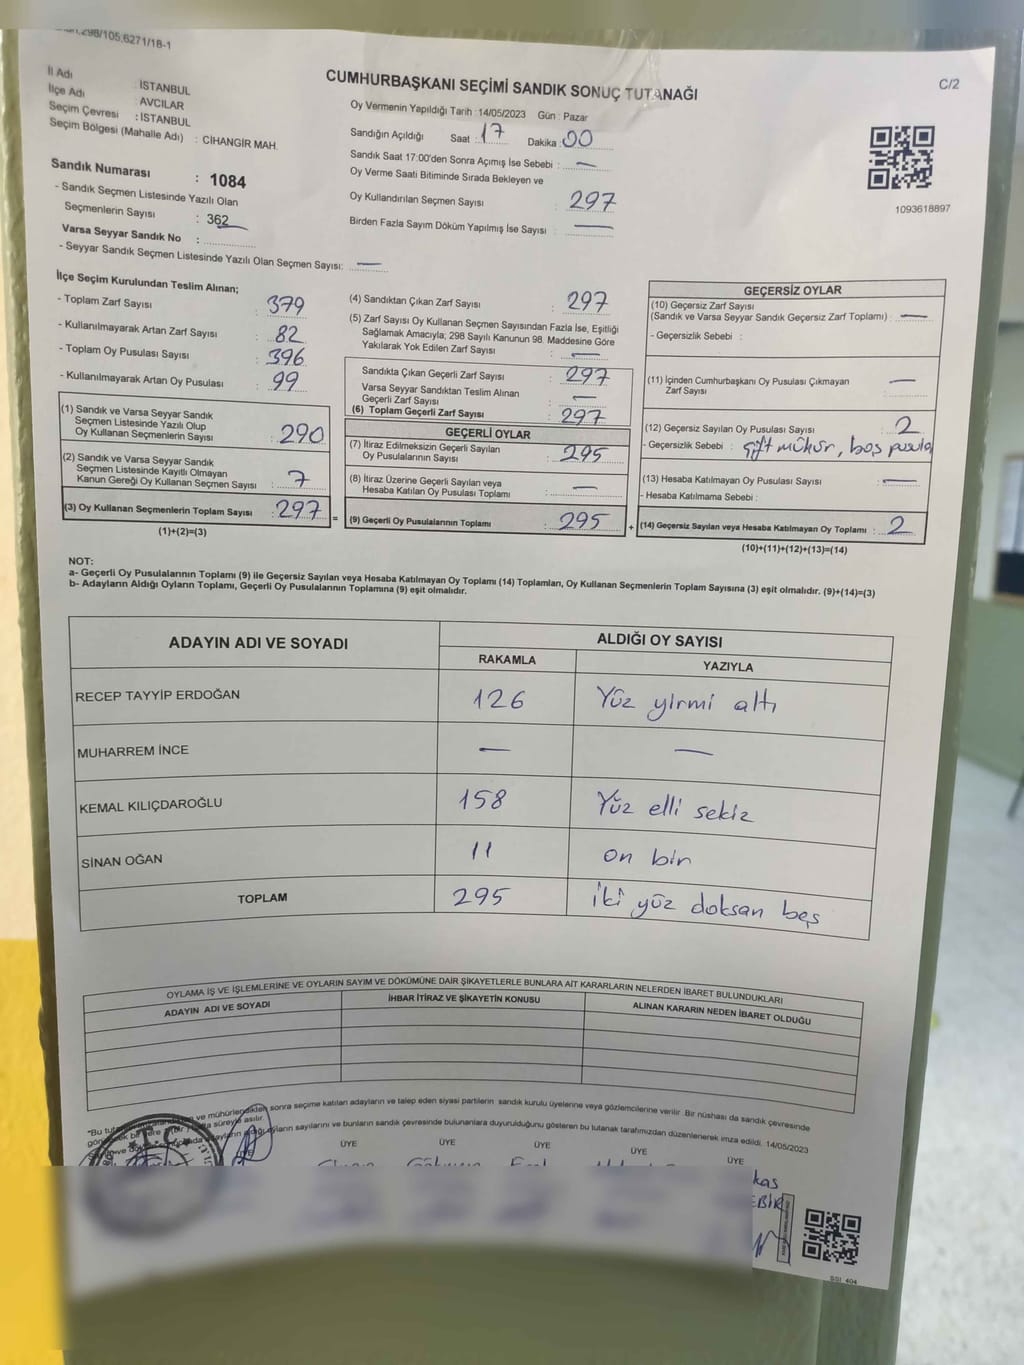 298/105,6271/18-1
C/2
CUMHURBAŞKANI SEÇİMİ SANDIK SONUÇ TUTANAĞI
İl Adı : İSTANBUL
İlçe Adı : AVCILAR
Seçim Çevresi : İSTANBUL
Seçim Bölgesi (Mahalle Adı) : CİHANGİR MAH.
Sandık Numarası : 1084
- Sandık Seçmen Listesinde Yazılı Olan
Seçmenlerin Sayısı : 362
Varsa Seyyar Sandık No :
- Seyyar Sandık Seçmen Listesinde Yazılı Olan Seçmen Sayısı: —
Oy Vermenin Yapıldığı Tarih : 14/05/2023 Gün : Pazar
Sandığın Açıldığı Saat : 17 Dakika : 00
Sandık Saat 17:00'den Sonra Açımış İse Sebebi : —
Oy Verme Saati Bitiminde Sırada Bekleyen ve
Oy Kullandırılan Seçmen Sayısı : 297
Birden Fazla Sayım Döküm Yapılmış İse Sayısı : —
1093618897
İlçe Seçim Kurulundan Teslim Alınan;
- Toplam Zarf Sayısı : 379
- Kullanılmayarak Artan Zarf Sayısı : 82
- Toplam Oy Pusulası Sayısı : 396
- Kullanılmayarak Artan Oy Pusulası : 99
(1) Sandık ve Varsa Seyyar Sandık
Seçmen Listesinde Yazılı Olup
Oy Kullanan Seçmenlerin Sayısı : 290
(2) Sandık ve Varsa Seyyar Sandık
Seçmen Listesinde Kayıtlı Olmayan
Kanun Gereği Oy Kullanan Seçmen Sayısı : 7
(3) Oy Kullanan Seçmenlerin Toplam Sayısı : 297
(1)+(2)=(3)
(4) Sandıktan Çıkan Zarf Sayısı : 297
(5) Zarf Sayısı Oy Kullanan Seçmen Sayısından Fazla İse, Eşitliği
Sağlamak Amacıyla; 298 Sayılı Kanunun 98. Maddesine Göre
Yakılarak Yok Edilen Zarf Sayısı : —
Sandıkta Çıkan Geçerli Zarf Sayısı : 297
Varsa Seyyar Sandıktan Teslim Alınan
Geçerli Zarf Sayısı : —
(6) Toplam Geçerli Zarf Sayısı : 297
GEÇERLİ OYLAR
(7) İtiraz Edilmeksizin Geçerli Sayılan
Oy Pusulalarının Sayısı : 295
(8) İtiraz Üzerine Geçerli Sayılan veya
Hesaba Katılan Oy Pusulası Toplamı : —
= (9) Geçerli Oy Pusulalarının Toplamı : 295
GEÇERSİZ OYLAR
(10) Geçersiz Zarf Sayısı
(Sandık ve Varsa Seyyar Sandık Geçersiz Zarf Toplamı) : —
- Geçersizlik Sebebi :
(11) İçinden Cumhurbaşkanı Oy Pusulası Çıkmayan
Zarf Sayısı : —
(12) Geçersiz Sayılan Oy Pusulası Sayısı : 2
- Geçersizlik Sebebi : çift mühür, boş pusula
(13) Hesaba Katılmayan Oy Pusulası Sayısı : —
- Hesaba Katılmama Sebebi :
+ (14) Geçersiz Sayılan veya Hesaba Katılmayan Oy Toplamı : 2
(10)+(11)+(12)+(13)=(14)
NOT:
a- Geçerli Oy Pusulalarının Toplamı (9) ile Geçersiz Sayılan veya Hesaba Katılmayan Oy Toplamı (14) Toplamları, Oy Kullanan Seçmenlerin Toplam Sayısına (3) eşit olmalıdır. (9)+(14)=(3)
b- Adayların Aldığı Oyların Toplamı, Geçerli Oy Pusulalarının Toplamına (9) eşit olmalıdır.
ADAYIN ADI VE SOYADI ALDIĞI OY SAYISI
RAKAMLA YAZIYLA
RECEP TAYYİP ERDOĞAN 126 Yüz yirmi altı
MUHARREM İNCE — —
KEMAL KILIÇDAROĞLU 158 Yüz elli sekiz
SİNAN OĞAN 11 on bir
TOPLAM 295 iki yüz doksan beş
OYLAMA İŞ VE İŞLEMLERİNE VE OYLARIN SAYIM VE DÖKÜMÜNE DAİR ŞİKAYETLERLE BUNLARA AİT KARARLARIN NELERDEN İBARET BULUNDUKLARI
ADAYIN ADI VE SOYADI İHBAR İTİRAZ VE ŞİKAYETİN KONUSU ALINAN KARARIN NEDEN İBARET OLDUĞU
*Bu ve mühürlendikten sonra seçime katılan adayların ve talep eden siyasi partilerin sandık kurulu üyelerine veya gözlemcilerine verilir. Bir nüshası da sandık çevresinde
süreyle asılır.
sayılarını ve bunların sandık çevresinde bulunanlara duyurulduğunu gösteren bu tutanak tarafımızdan düzenlenerek imza edildi. 14/05/2023
ÜYE ÜYE ÜYE ÜYE ÜYE
SSI 404